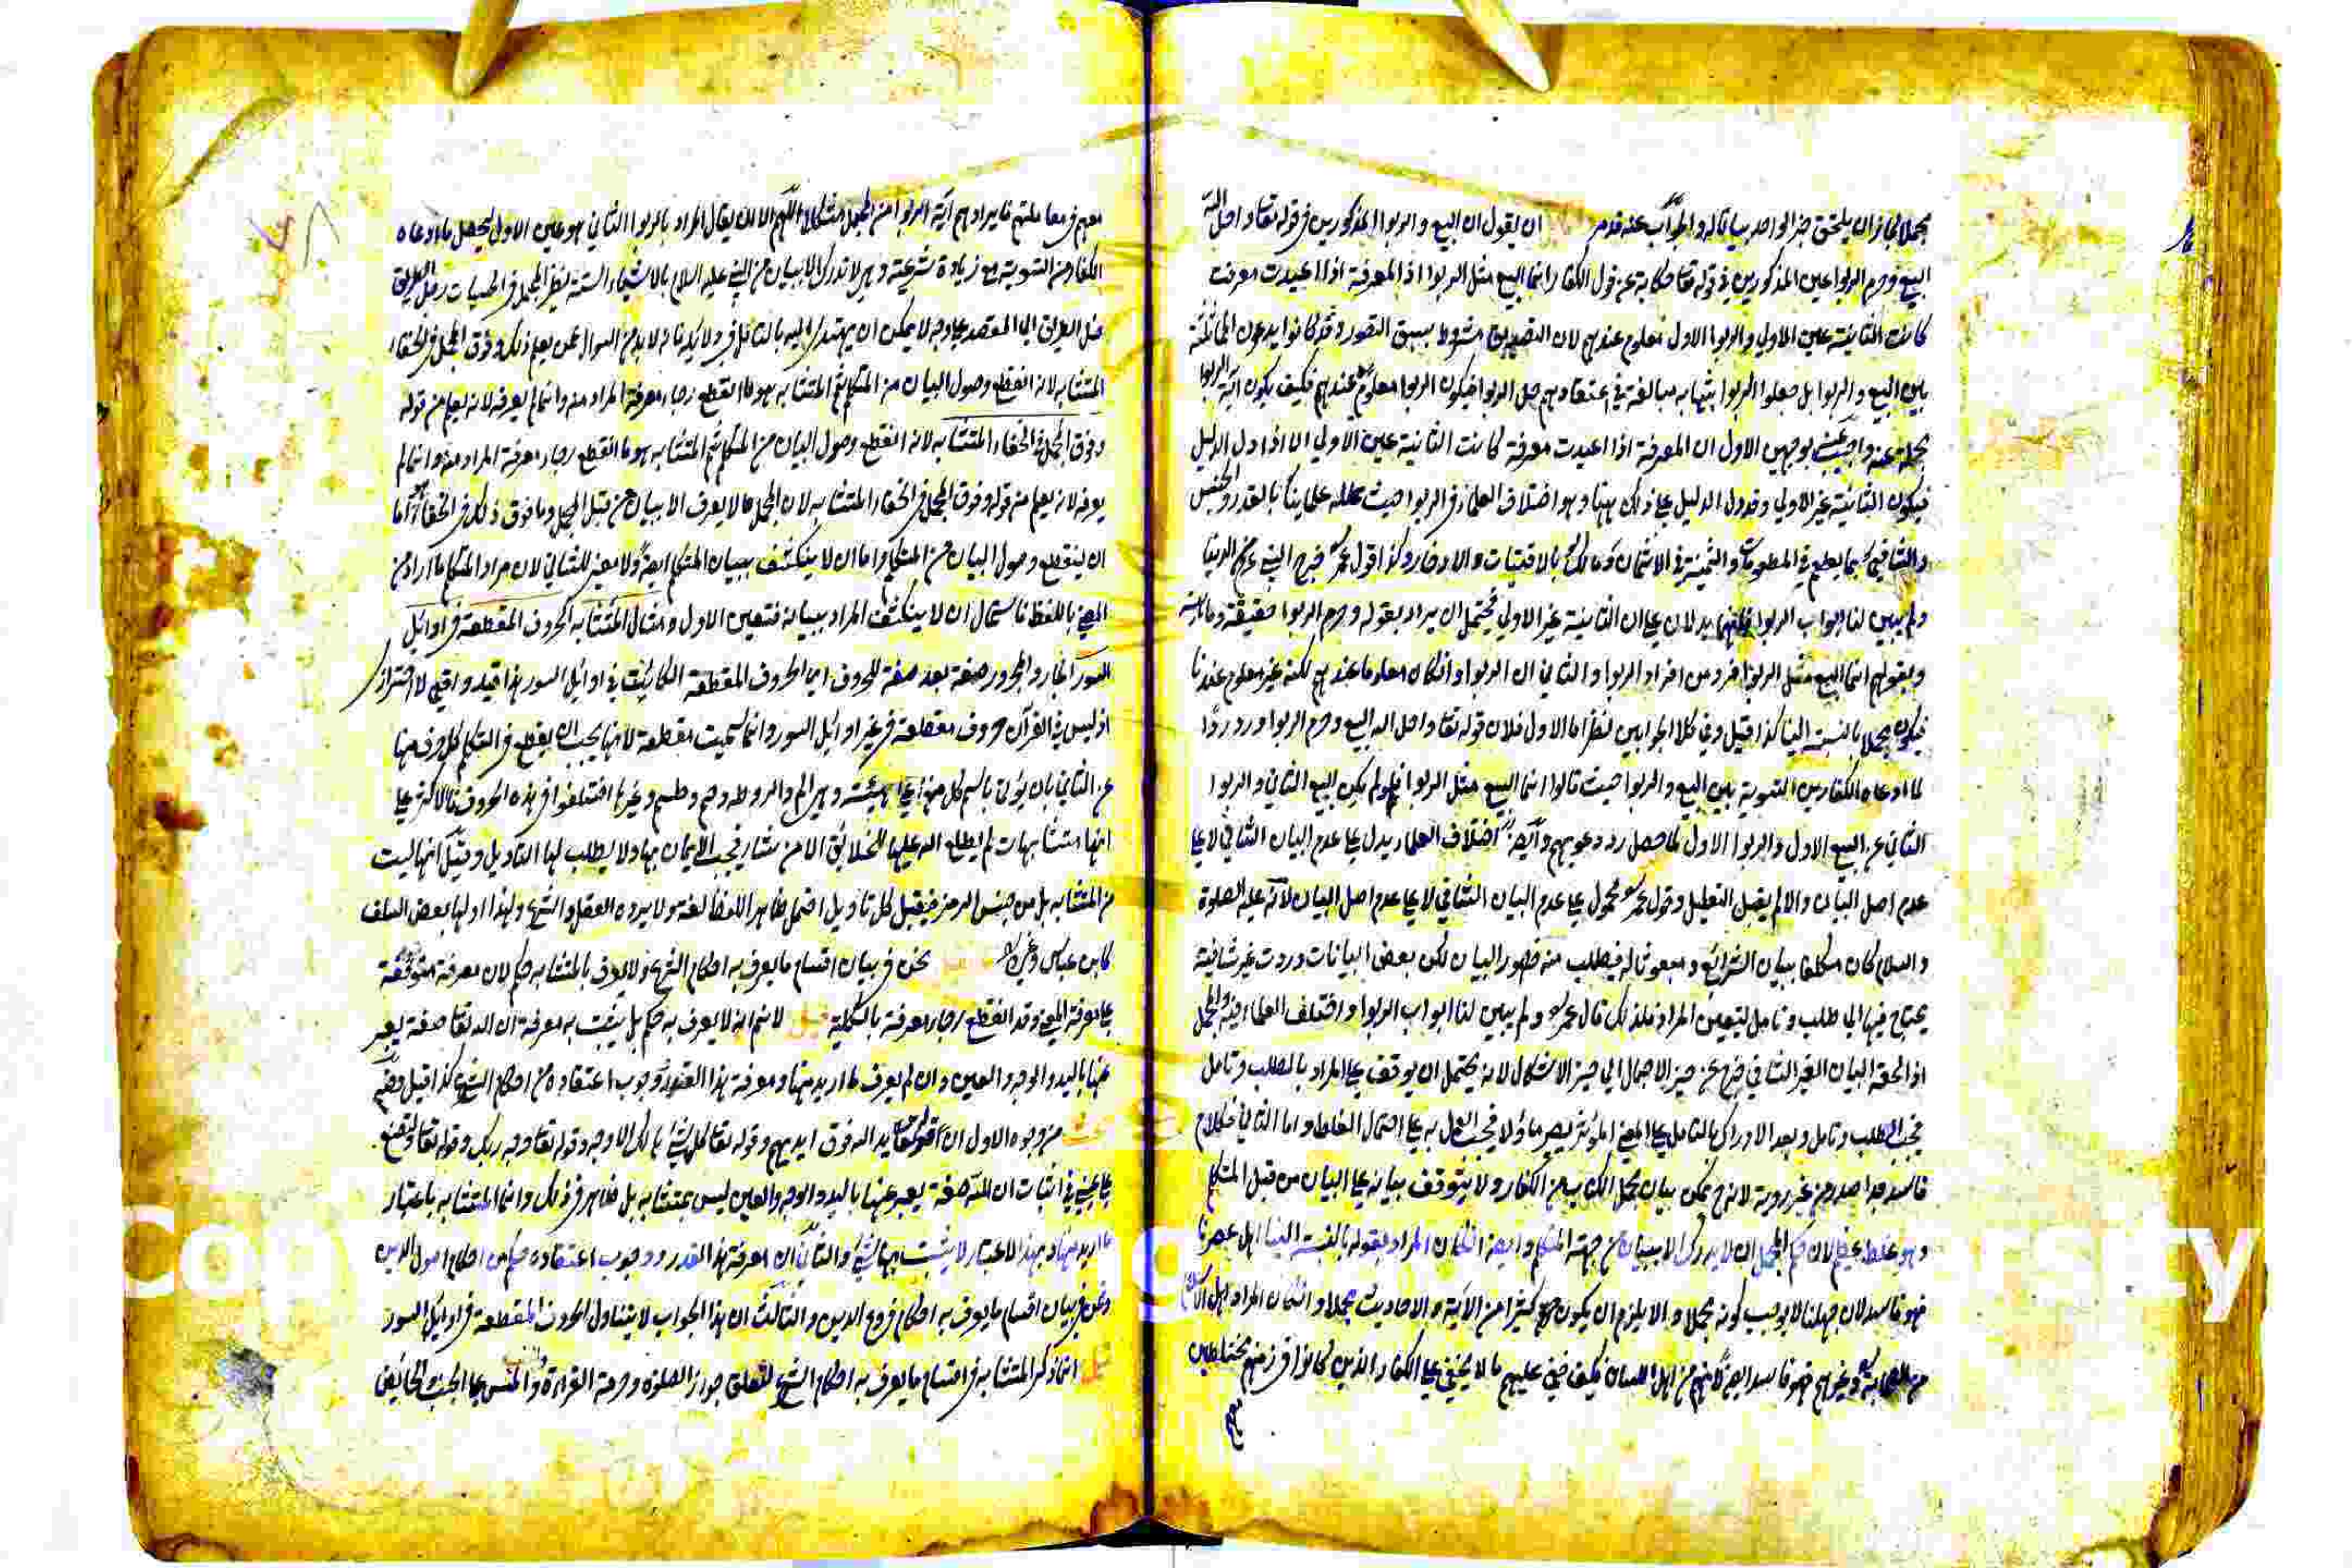 مجملا لجاز ان يلتحق خبر الواحد بيانا له والجواب عنه قد مر ان يقول ان البيع والربوا المذكورين في قوله تعا واحل الله
البيع وحرم الربوا عين المذكورين في قوله تعا حكاية عن قول الكفار انما البيع مثل الربوا اذ المعرفة اذا اعيدت معرفة
كانت الثانية عين الاولي والربوا الاول معلوم عندهم لان التصديق مشروط بسبق التصور وقد كانوا يدعون المماثلة
بين البيع والربوا بل جعلوا الربوا مشبها به مبالغة في اعتقادهم حل الربوا فيكون الربوا معلوم عندهم فكيف يكون آية الربوا
مجملة عنه واجيب بوجهين الاول ان المعرفة اذا اعيدت معرفة كانت الثانية عين الاولي الا اذا دل الدليل
فيكون الثانية غير الاولي وقد دل الدليل علي ذلك هنا وهو اختلاف العلماء في الربوا حيث علله علماينا بالقدر والجنس
والشافعي بما يطعم في المطعومات والثمنية في الاثمان ومالك بالاقتيات والادخار وكذا قول عمر خرج النبي عم من الدنيا
ولم يبين لنا ابواب الربوا يدلان علي ان الثانية غير الاولي فيحتمل ان يراد بقوله وحرم الربوا حقيقة وماهيته
وبقولهم انما البيع مثل الربوا فرد من افراد الربوا والثاني ان الربوا وان كان معلوما عندهم لكنه غير معلوم عندنا
فيكون مجملا بالنسبة الينا كذا قيل وفي كلا الجوابين نظر اما الاول فلان قوله تعا واحل الله البيع وحرم الربوا ورد ردا
لما ادعاه الكفار من التسوية بين البيع والربوا حيث قالوا انما البيع مثل الربوا فلو لم يكن البيع الثاني والربوا
الثاني عن البيع الاول والربوا الاول لما حصل رد دعويهم وايضا اختلاف العلماء يدل علي عدم البيان الشافي لا علي
عدم اصل البيان والا لم يقبل التعليل وقول عمر محمول علي عدم البيان الشافي لا علي عدم اصل البيان لانه عليه الصلوة
والسلام كان مكلفا ببيان الشرائع ومبعوثا له فيطلب منه ظهور البيان لكن بعض البيانات وردت غير شافية
يحتاج فيها الي طلب وتامل لتعيين المراد فلذلك قال عمر ولم يبين لنا ابواب الربوا واختلف العلماء فيه والمجمل
اذا لحقه البيان الغير الشافي خرج عن حيز الاجمال الي حيز الاشكال لانه يحتمل ان يوقف علي المراد بالطلب وتامل
فيجب الطلب وتامل وبعد الادراك بالتامل علي المعني المؤثر يصير ماؤلا فيجب العمل به علي احتمال الغلط واما الثاني فكلام
فاسد جدا صدر عن غير روية لانه ح يمكن بيان مجمل الكتاب من الكفار ولا يتوقف بيانه علي البيان من قبل المتكلم
وهو غلط عظيم لان حكم المجمل ان لا يدرك الا ببيان من جهة المتكلم وايضا ان كان المراد بقوله بالنسبة الينا اهل عصرنا
فهو فاسد لان جهلنا لا يوجب كونه مجملا والا يلزم ان يكون كثيرا من الآية والاحاديث مجملا وان كان المراد اهل الاسلام
من الصحابة وغيرهم فهو فاسد ايضا لانهم من اهل اللسان فكيف خفي عليهم ما لا يخفي علي الكفار الذين كانوا في زمنهم مختلطين
معهم
معهم في معاملتهم فايراد هم آية الربوا من المجمل مشكل اللهم الا ان يقال المراد بالربوا الثاني هو عين الاول ليحصل ما ادعاه
الكفار من التسوية مع زيادة شرعية وهي لا تدرك الا ببيان من النبي عليه السلام بالاشياء الستة نظير المجمل في الحسيات رجل
ضل الطريق الي المقصد علي وجه لا يمكن ان يهتدي اليه بالتامل في ولايته فانه لا بد من السؤال عمن يعلم ذلك وفوق المجمل في الخفاء
المتشابه لانه انقطع وصول البيان من المتكلم ثم المتشابه هو ما انقطع رجاء معرفة المراد منه وانما لم يعرفه لانه يعلم من قوله
وفوق المجمل في الخفاء المتشابه لانه انقطع وصول البيان من المتكلم ثم المتشابه هو ما انقطع رجاء معرفة المراد منه وانما لم
يعرفه لانه يعلم من قوله وفوق المجمل في الخفاء المتشابه لان المجمل ما لا يعرف الا ببيان من قبل المجمل وما فوق ذلك في الخفاء اما
ان ينقطع وصول البيان من المتكلم واما ان لا ينكشف ببيان المتكلم ايضا ولا معني للثاني لان مراد المتكلم ما اراد من
المعني باللفظ فاستحال ان لا ينكشف المراد ببيانه فتعين الاول ومثال المتشابه الحروف المقطعة في اوائل
السور الجار والمجرور صفة بعد صفة للحروف اي الحروف المقطعة الكائنة في اوائل السور هذا قيد واقعي لا احترازي
اذ ليس في القرآن حروف مقطعة في غير اوائل السور وانما سميت مقطعة لانها يجب ان يقطع في التكلم كل حرف منها
عن الثاني بان يؤتي باسم كل منها علي هيئته وهي الم والمر وطه وحم وطسم وغيرها اختلفوا في هذه الحروف فالاكثر علي
انها متشابهات لم يطلع الله عليها الخلائق الا من شاء فيجب الايمان بها ولا يطلب لها التاويل وقيل انها ليست
من المتشابه بل من جنس الرمز فيقبل كل تاويل احتمل ظاهر اللفظ لغة ولا يرده العقل والشرع ولهذا اولها بعض السلف
كابن عباس وغيره نحن في بيان اقسام ما يعرف به احكام الشرع ولا يعرف بالمتشابه حكم لان معرفته متوقفة
علي معرفة المعني وقد انقطع رجاء معرفة بالكلية لا نسلم انه لا يعرف به حكم بل يثبت به معرفة ان لله تعا صفة يعبر
عنها باليد والوجه والعين وان لم يعرف ما اريد منها ومعرفة هذا القدر ووجوب اعتقاده من احكام الشرع كذا قيل وفيه
من وجوه الاول ان قوله تعا يد الله فوق ايديهم وقوله تعا كل شئ هالك الا وجهه وقوله تعا وجه ربك وقوله تعا ولتصنع
علي عيني في اثبات ان لله صفة يعبر عنها باليد والوجه والعين ليس بمتشابه بل ظاهر في ذلك وانما المتشابه باعتبار
ما اريد منها وبهذا الاعتبار لا يثبت بها شئ والثاني ان معرفة هذا القدر ووجوب اعتقاده حكم من احكام اصول الدين
ونحن في بيان اقسام ما يعرف به احكام فروع الدين والثالث ان هذا الجواب لا يتناول الحروف المقطعة في اوائل السور
انما ذكر المتشابه في اقسام ما يعرف به احكام الشرع لتعلق جواز الصلوة وحرمة القراءة والمس علي الجنب والحائض